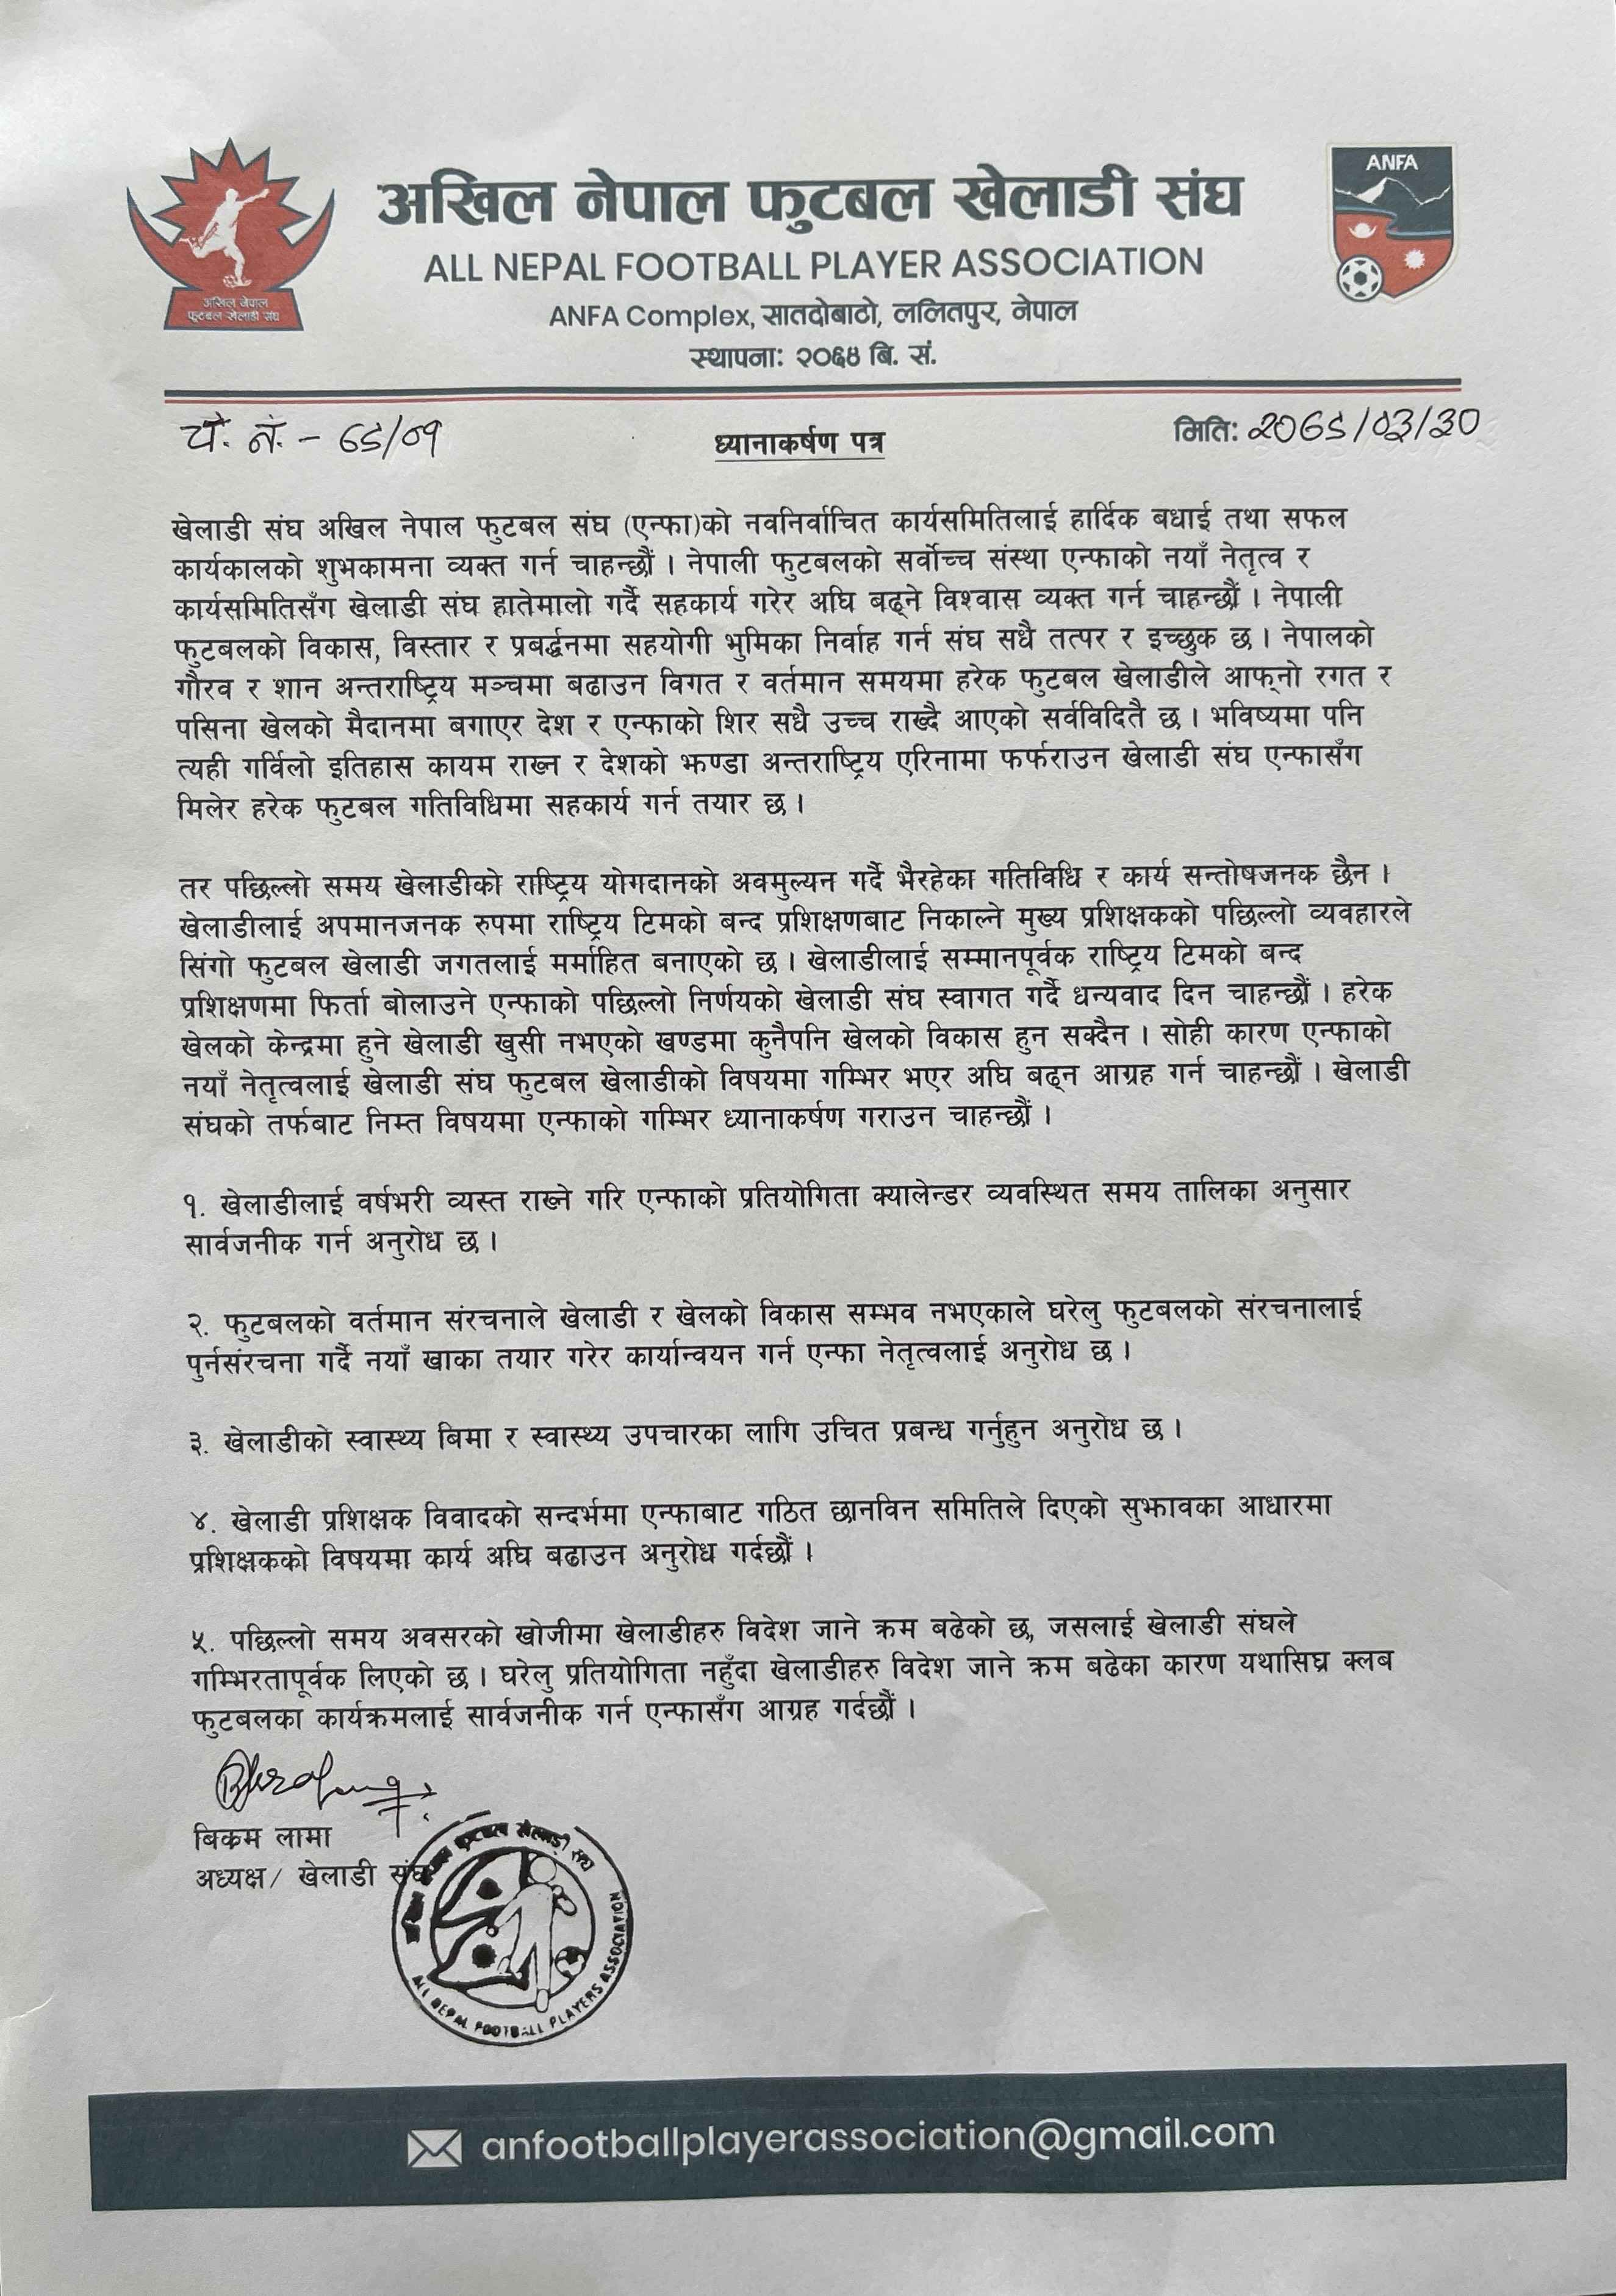 अखिल नेपाल फुटबल खेलाडी संघ
ALL NEPAL FOOTBALL PLAYER ASSOCIATION
ANFA Complex, सातदोबाठो, ललितपुर, नेपाल
स्थापना: २०६४ बि. सं.
अखिल नेपाल
फुटबल खेलाडी संघ
ANFA
च. नं. - ७९/०१
ध्यानाकर्षण पत्र
मिति: २०७९/०३/३०
खेलाडी संघ अखिल नेपाल फुटबल संघ (एन्फा)को नवनिर्वाचित कार्यसमितिलाई हार्दिक बधाई तथा सफल
कार्यकालको शुभकामना व्यक्त गर्न चाहन्छौं । नेपाली फुटबलको सर्वोच्च संस्था एन्फाको नयाँ नेतृत्व र
कार्यसमितिसँग खेलाडी संघ हातेमालो गर्दै सहकार्य गरेर अघि बढ्ने विश्वास व्यक्त गर्न चाहन्छौं । नेपाली
फुटबलको विकास, विस्तार र प्रबर्द्धनमा सहयोगी भुमिका निर्वाह गर्न संघ सधै तत्पर र इच्छुक छ । नेपालको
गौरव र शान अन्तराष्ट्रिय मञ्चमा बढाउन विगत र वर्तमान समयमा हरेक फुटबल खेलाडीले आफ्नो रगत र
पसिना खेलको मैदानमा बगाएर देश र एन्फाको शिर सधै उच्च राख्दै आएको सर्वविदितै छ । भविष्यमा पनि
त्यही गर्विलो इतिहास कायम राख्न र देशको झण्डा अन्तराष्ट्रिय एरिनामा फर्फराउन खेलाडी संघ एन्फासँग
मिलेर हरेक फुटबल गतिविधिमा सहकार्य गर्न तयार छ ।
तर पछिल्लो समय खेलाडीको राष्ट्रिय योगदानको अवमुल्यन गर्दै भैरहेका गतिविधि र कार्य सन्तोषजनक छैन ।
खेलाडीलाई अपमानजनक रुपमा राष्ट्रिय टिमको बन्द प्रशिक्षणबाट निकाल्ने मुख्य प्रशिक्षकको पछिल्लो व्यवहारले
सिंगो फुटबल खेलाडी जगतलाई मर्माहित बनाएको छ । खेलाडीलाई सम्मानपूर्वक राष्ट्रिय टिमको बन्द
प्रशिक्षणमा फिर्ता बोलाउने एन्फाको पछिल्लो निर्णयको खेलाडी संघ स्वागत गर्दै धन्यवाद दिन चाहन्छौं । हरेक
खेलको केन्द्रमा हुने खेलाडी खुसी नभएको खण्डमा कुनैपनि खेलको विकास हुन सक्दैन । सोही कारण एन्फाको
नयाँ नेतृत्वलाई खेलाडी संघ फुटबल खेलाडीको विषयमा गम्भिर भएर अघि बढ्न आग्रह गर्न चाहन्छौं । खेलाडी
संघको तर्फबाट निम्त विषयमा एन्फाको गम्भिर ध्यानाकर्षण गराउन चाहन्छौं ।
१. खेलाडीलाई वर्षभरी व्यस्त राख्ने गरि एन्फाको प्रतियोगिता क्यालेन्डर व्यवस्थित समय तालिका अनुसार
सार्वजनीक गर्न अनुरोध छ ।
२. फुटबलको वर्तमान संरचनाले खेलाडी र खेलको विकास सम्भव नभएकाले घरेलु फुटबलको संरचनालाई
पुर्नसंरचना गर्दै नयाँ खाका तयार गरेर कार्यान्वयन गर्न एन्फा नेतृत्वलाई अनुरोध छ ।
३. खेलाडीको स्वास्थ्य बिमा र स्वास्थ्य उपचारका लागि उचित प्रबन्ध गर्नुहुन अनुरोध छ ।
४. खेलाडी प्रशिक्षक विवादको सन्दर्भमा एन्फाबाट गठित छानविन समितिले दिएको सुझावका आधारमा
प्रशिक्षकको विषयमा कार्य अघि बढाउन अनुरोध गर्दछौं ।
५. पछिल्लो समय अवसरको खोजीमा खेलाडीहरु विदेश जाने क्रम बढेको छ, जसलाई खेलाडी संघले
गम्भिरतापूर्वक लिएको छ । घरेलु प्रतियोगिता नहुँदा खेलाडीहरु विदेश जाने क्रम बढेका कारण यथासिघ्र क्लब
फुटबलका कार्यक्रमलाई सार्वजनीक गर्न एन्फासँग आग्रह गर्दछौं ।
बिक्रम लामा
अध्यक्ष/ खेलाडी संघ
फुटबल खेलाडी संघ
ALL NEPAL FOOTBALL PLAYERS ASSOCIATION
anfootballplayerassociation@gmail.com